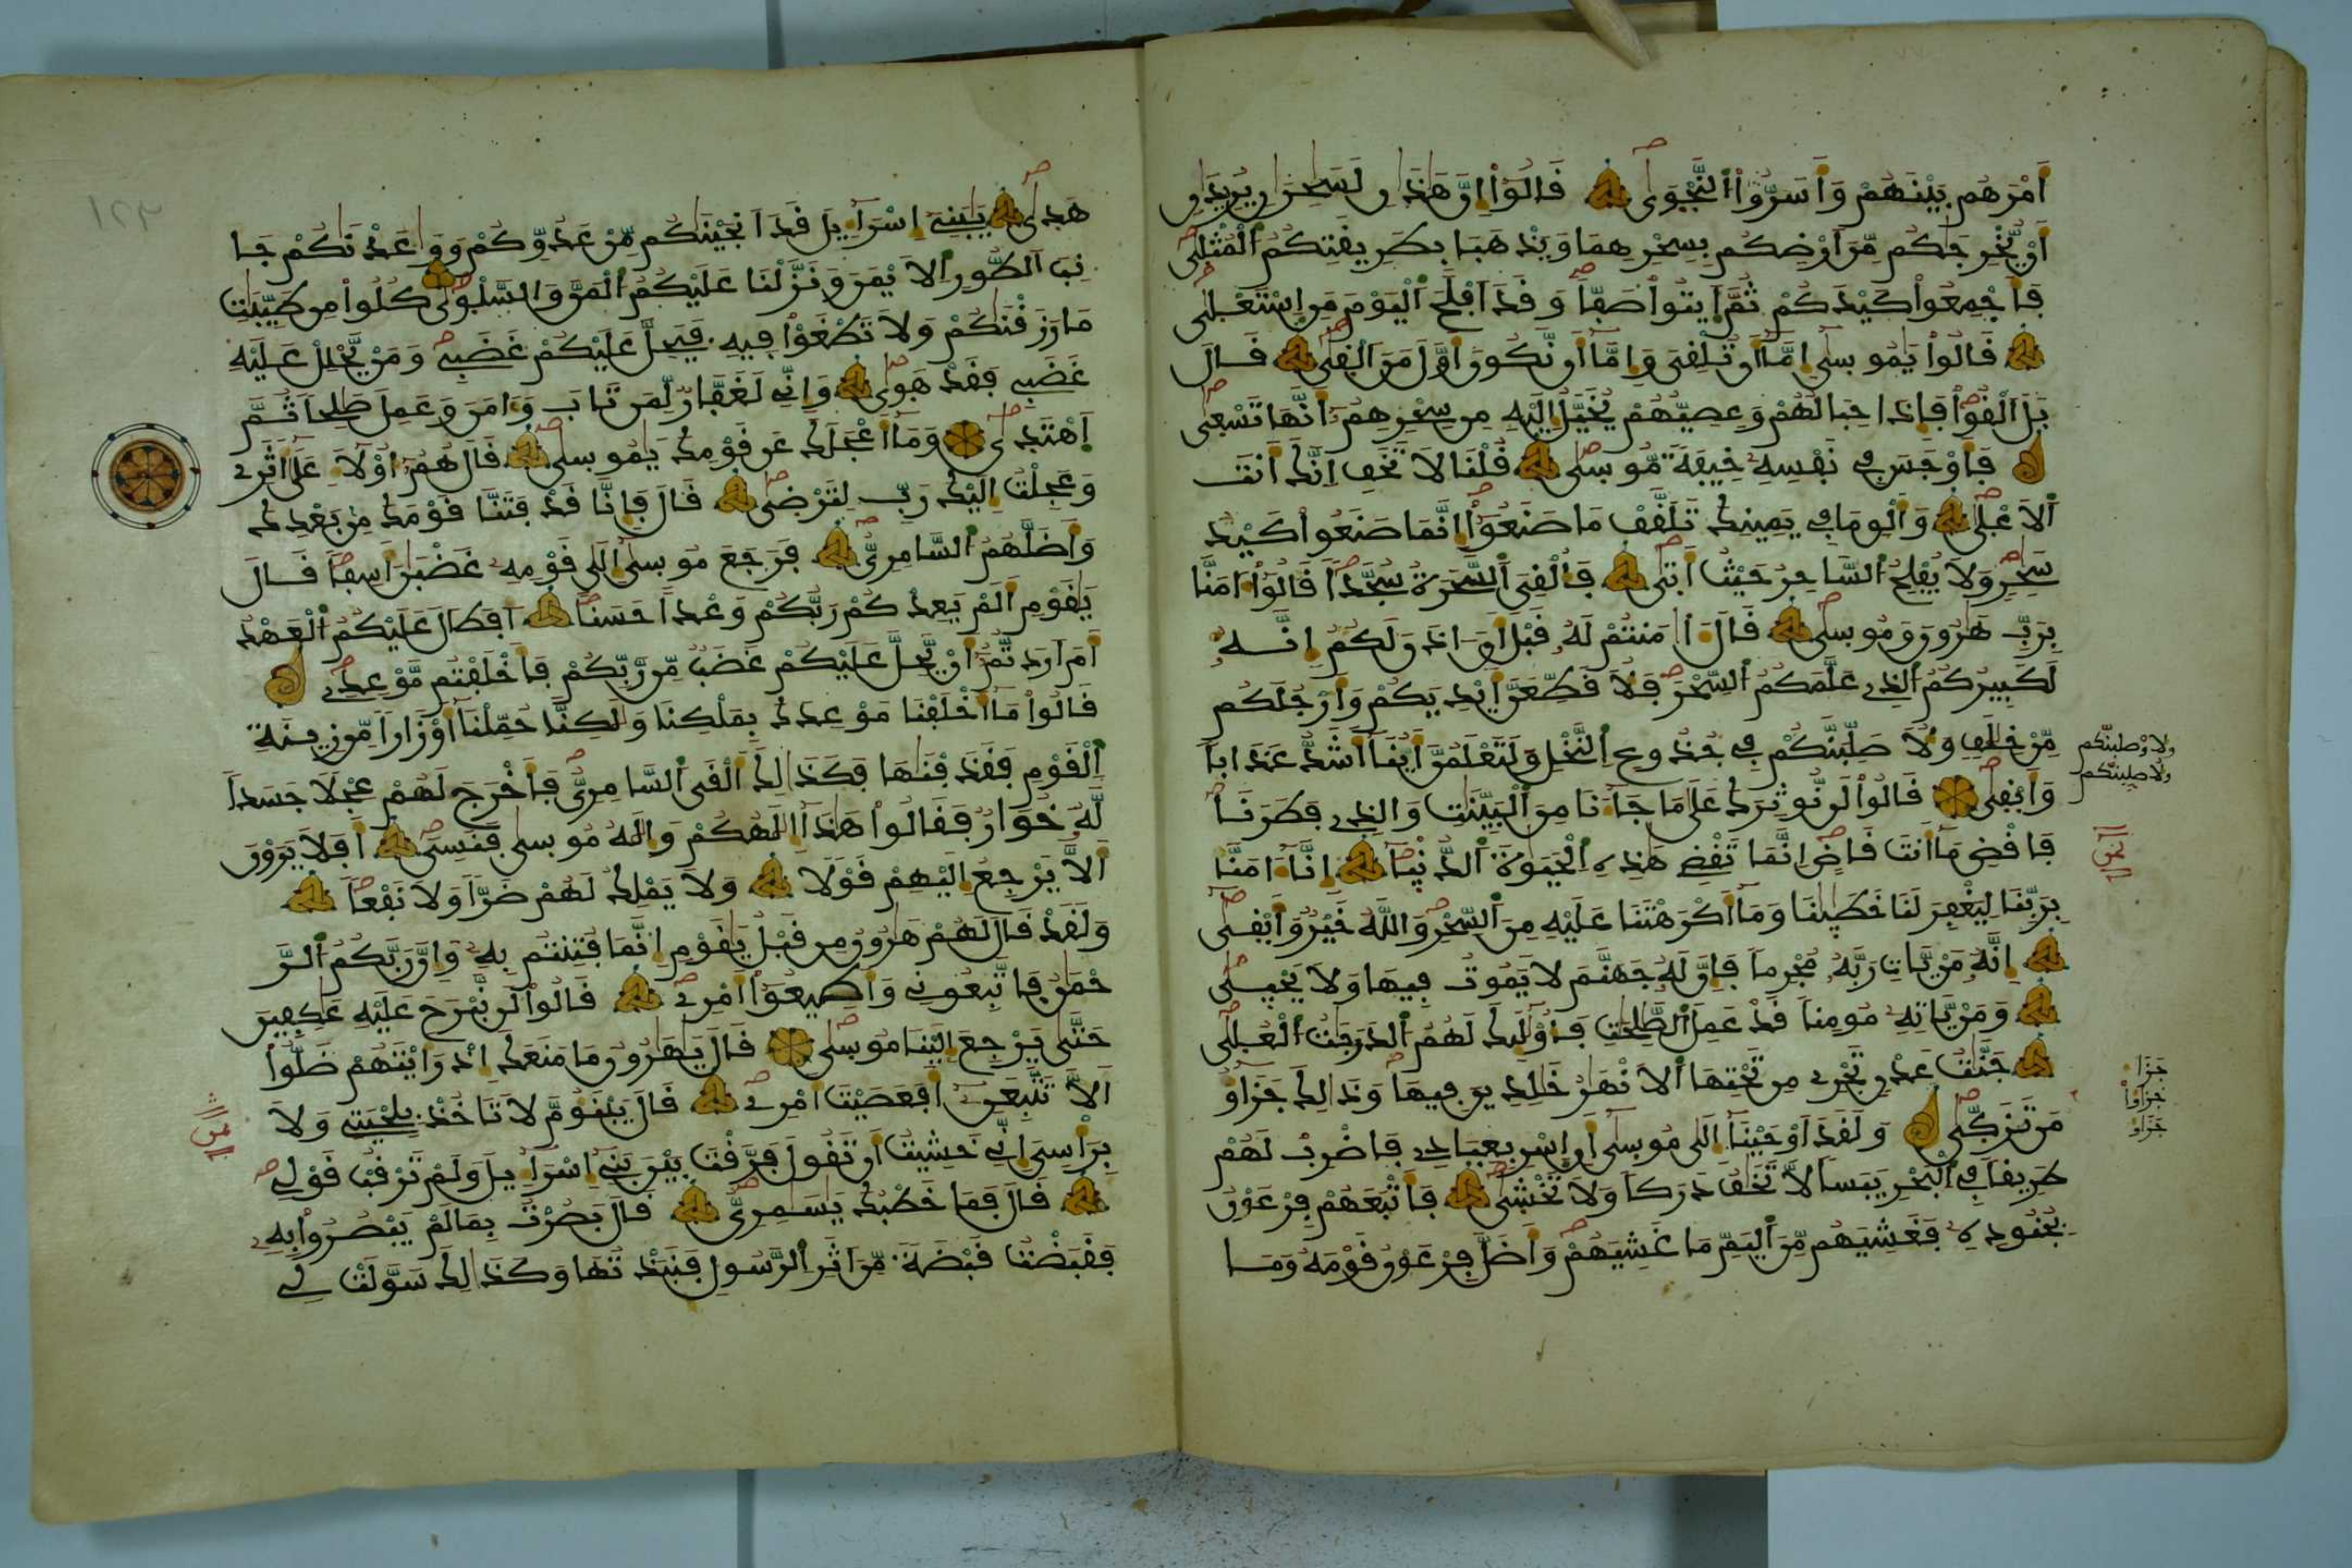 أَمْرَهُم بَيْنَهُمْ وَأَسَرُّواْ النَّجْوَىٰ قَالُواْ إِنَّ هَٰذَٰنِ لَسَٰحِرَٰنِ يُرِيدَٰنِ
أَنْ يُّخْرِجَٰكُم مِّنَ ارْضِكُم بِسِحْرِهِمَا وَيَذْهَبَا بِطَرِيقَتِكُمُ الْمُثْلَىٰ
فَأَجْمِعُواْ كَيْدَكُمْ ثُمَّ ايتُواْ صَفّاً وَقَدَ افْلَحَ الْيَوْمَ مَنِ اِسْتَعْلَىٰ
قَالُواْ يَٰمُوسَىٰ إِمَّا أَن تُلْقِيَ وَإِمَّا أَن نَّكُونَ أَوَّلَ مَنَ الْقَىٰ قَالَ
بَلَ الْقُواْ فَإِذَا حِبَالُهُمْ وَعِصِيُّهُمْ يُخَيَّلُ إِلَيْهِ مِن سِحْرِهِمُ أَنَّهَا تَسْعَىٰ
فَأَوْجَسَ فِي نَفْسِهِ خِيفَةً مُّوسَىٰ قُلْنَا لَا تَخَفِ اِنَّكَ أَنتَ
الَاعْلَىٰ وَأَلْقِ مَا فِي يَمِينِكَ تَلَقَّفْ مَا صَنَعُواْ إِنَّمَا صَنَعُواْ كَيْدُ
سَٰحِرٍ وَلَا يُفْلِحُ السَّاحِرُ حَيْثُ أَتَىٰ فَأُلْقِيَ السَّحَرَةُ سُجَّداً قَالُواْ ءَامَنَّا
بِرَبِّ هَٰرُونَ وَمُوسَىٰ قَالَ ءَاٰمَنتُمْ لَهُ قَبْلَ أَنَ اٰذَنَ لَكُمُ إِنَّهُ
لَكَبِيرُكُمُ الذِي عَلَّمَكُمُ السِّحْرَ فَلَأُقَطِّعَنَّ أَيْدِيَكُمْ وَأَرْجُلَكُم
مِّنْ خِلَٰفٍ وَلَأُصَلِّبَنَّكُمْ فِي جُذُوعِ النَّخْلِ وَلَتَعْلَمُنَّ أَيُّنَا أَشَدُّ عَذَاباً
وَأَبْقَىٰ قَالُواْ لَن نُّوثِرَكَ عَلَىٰ مَا جَاءَنَا مِنَ الْبَيِّنَٰتِ وَالذِي فَطَرَنَا
فَاقْضِ مَا أَنتَ قَاضٍ اِنَّمَا تَقْضِي هَٰذِهِ الْحَيَوٰةَ الدُّنْيَا إِنَّا ءَامَنَّا
بِرَبِّنَا لِيَغْفِرَ لَنَا خَطَٰيَٰنَا وَمَا أَكْرَهْتَنَا عَلَيْهِ مِنَ السِّحْرِ وَاللَّهُ خَيْرٌ وَأَبْقَىٰ
إِنَّهُ مَنْ يَّاتِ رَبَّهُ مُجْرِماً فَإِنَّ لَهُ جَهَنَّمَ لَا يَمُوتُ فِيهَا وَلَا يَحْيَىٰ
وَمَنْ يَّاتِهِ مُومِناً قَدْ عَمِلَ الصَّٰلِحَٰتِ فَأُوْلَٰئِكَ لَهُمُ الدَّرَجَٰتُ الْعُلَىٰ
جَنَّٰتُ عَدْنٍ تَجْرِي مِن تَحْتِهَا الَانْهَٰرُ خَٰلِدِينَ فِيهَا وَذَٰلِكَ جَزَٰؤُاْ
مَن تَزَكَّىٰ وَلَقَدَ اوْحَيْنَا إِلَىٰ مُوسَىٰ أَنِ اِسْرِ بِعِبَادِي فَاضْرِبْ لَهُمْ
طَرِيقاً فِي الْبَحْرِ يَبَساً لَّا تَخَٰفُ دَرَكاً وَلَا تَخْشَىٰ فَأَتْبَعَهُمْ فِرْعَوْنُ
بِجُنُودِهِ فَغَشِيَهُم مِّنَ الْيَمِّ مَا غَشِيَهُمْ وَأَضَلَّ فِرْعَوْنُ قَوْمَهُ وَمَا
ولأوصلبنّكم
ولأصلبنّكم
جَزَا
جَزَاؤاْ
جَزَاؤ
هَدَىٰ يَٰبَنِي إِسْرَاءِيلَ قَدَ انجَيْنَٰكُم مِّنْ عَدُوِّكُمْ وَوَٰعَدْنَٰكُمْ جَا
نِبَ الطُّورِ الَايْمَنَ وَنَزَّلْنَا عَلَيْكُمُ الْمَنَّ وَالسَّلْوَىٰ كُلُواْ مِن طَيِّبَٰتِ
مَا رَزَقْنَٰكُمْ وَلَا تَطْغَوْاْ فِيهِ فَيَحِلَّ عَلَيْكُمْ غَضَبِي وَمَنْ يَّحْلِلْ عَلَيْهِ
غَضَبِي فَقَدْ هَوَىٰ وَإِنِّي لَغَفَّارٌ لِّمَن تَابَ وَءَامَنَ وَعَمِلَ صَٰلِحاً ثُمَّ
اَهْتَدَىٰ وَمَا أَعْجَلَكَ عَن قَوْمِكَ يَٰمُوسَىٰ قَالَ هُمُ أُوْلَاءِ عَلَىٰ أَثَرِي
وَعَجِلْتُ إِلَيْكَ رَبِّ لِتَرْضَىٰ قَالَ فَإِنَّا قَدْ فَتَنَّا قَوْمَكَ مِن بَعْدِكَ
وَأَضَلَّهُمُ السَّامِرِيُّ فَرَجَعَ مُوسَىٰ إِلَىٰ قَوْمِهِ غَضْبَٰنَ أَسِفاً قَالَ
يَٰقَوْمِ أَلَمْ يَعِدْكُمْ رَبُّكُمْ وَعْداً حَسَناً أَفَطَالَ عَلَيْكُمُ الْعَهْدُ
أَمَ اَرَدتُّمُ أَنْ يَّحِلَّ عَلَيْكُمْ غَضَبٌ مِّن رَّبِّكُمْ فَأَخْلَفْتُم مَّوْعِدِي
قَالُواْ مَا أَخْلَفْنَا مَوْعِدَكَ بِمَلْكِنَا وَلَٰكِنَّا حُمِّلْنَا أَوْزَاراً مِّن زِينَةِ
الْقَوْمِ فَقَذَفْنَٰهَا فَكَذَٰلِكَ أَلْقَى السَّامِرِيُّ فَأَخْرَجَ لَهُمْ عِجْلاً جَسَداً
لَّهُ خُوَارٌ فَقَالُواْ هَٰذَا إِلَٰهُكُمْ وَإِلَٰهُ مُوسَىٰ فَنَسِيَ أَفَلَا يَرَوْنَ
أَلَّا يَرْجِعُ إِلَيْهِمْ قَوْلاً وَلَا يَمْلِكُ لَهُمْ ضَرّاً وَلَا نَفْعاً
وَلَقَدْ قَالَ لَهُمْ هَٰرُونُ مِن قَبْلُ يَٰقَوْمِ إِنَّمَا فُتِنتُم بِهِ وَإِنَّ رَبَّكُمُ الرَّ
حْمَٰنُ فَاتَّبِعُونِي وَأَطِيعُواْ أَمْرِي قَالُواْ لَن نَّبْرَحَ عَلَيْهِ عَٰكِفِينَ
حَتَّىٰ يَرْجِعَ إِلَيْنَا مُوسَىٰ قَالَ يَٰهَٰرُونُ مَا مَنَعَكَ إِذْ رَأَيْتَهُمْ ضَلُّواْ
أَلَّا تَتَّبِعَنِ أَفَعَصَيْتَ أَمْرِي قَالَ يَبْنَؤُمَّ لَا تَاخُذْ بِلِحْيَتِي وَلَا
بِرَأْسِيَ إِنِّي خَشِيتُ أَن تَقُولَ فَرَّقْتَ بَيْنَ بَنِي إِسْرَاءِيلَ وَلَمْ تَرْقُبْ قَوْلِي
قَالَ فَمَا خَطْبُكَ يَٰسَٰمِرِيُّ قَالَ بَصُرْتُ بِمَا لَمْ يَبْصُرُواْ بِهِ
فَقَبَضْتُ قَبْضَةً مِّنَ اَثَرِ الرَّسُولِ فَنَبَذْتُهَا وَكَذَٰلِكَ سَوَّلَتْ لِي
١٢٣